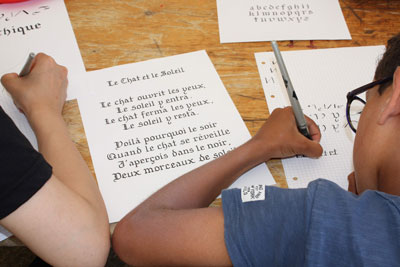 thique
a b c d e f g h i j
k l m n o p q r s t
u v w x y z
Le Chat et le Soleil
Le chat ouvrit les yeux,
Le soleil y entra.
Le chat ferma les yeux,
Le soleil y resta.
Voilà pourquoi le soir
Quand le chat se réveille
J'aperçois dans le noir,
Deux morceaux de soleil